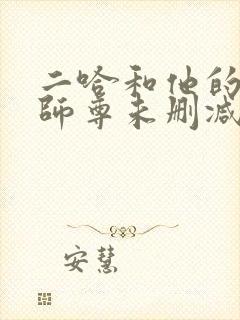 二哈和他的
师尊未删减
安慧